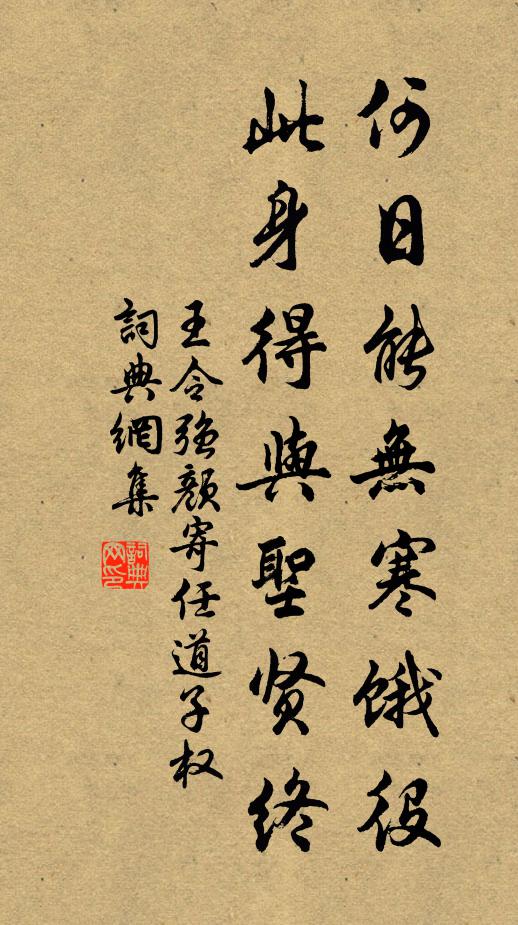 何日能無寒餓役
此身得與聖贤終
王令強顏寄任道子权
詞典網集
詞典网印